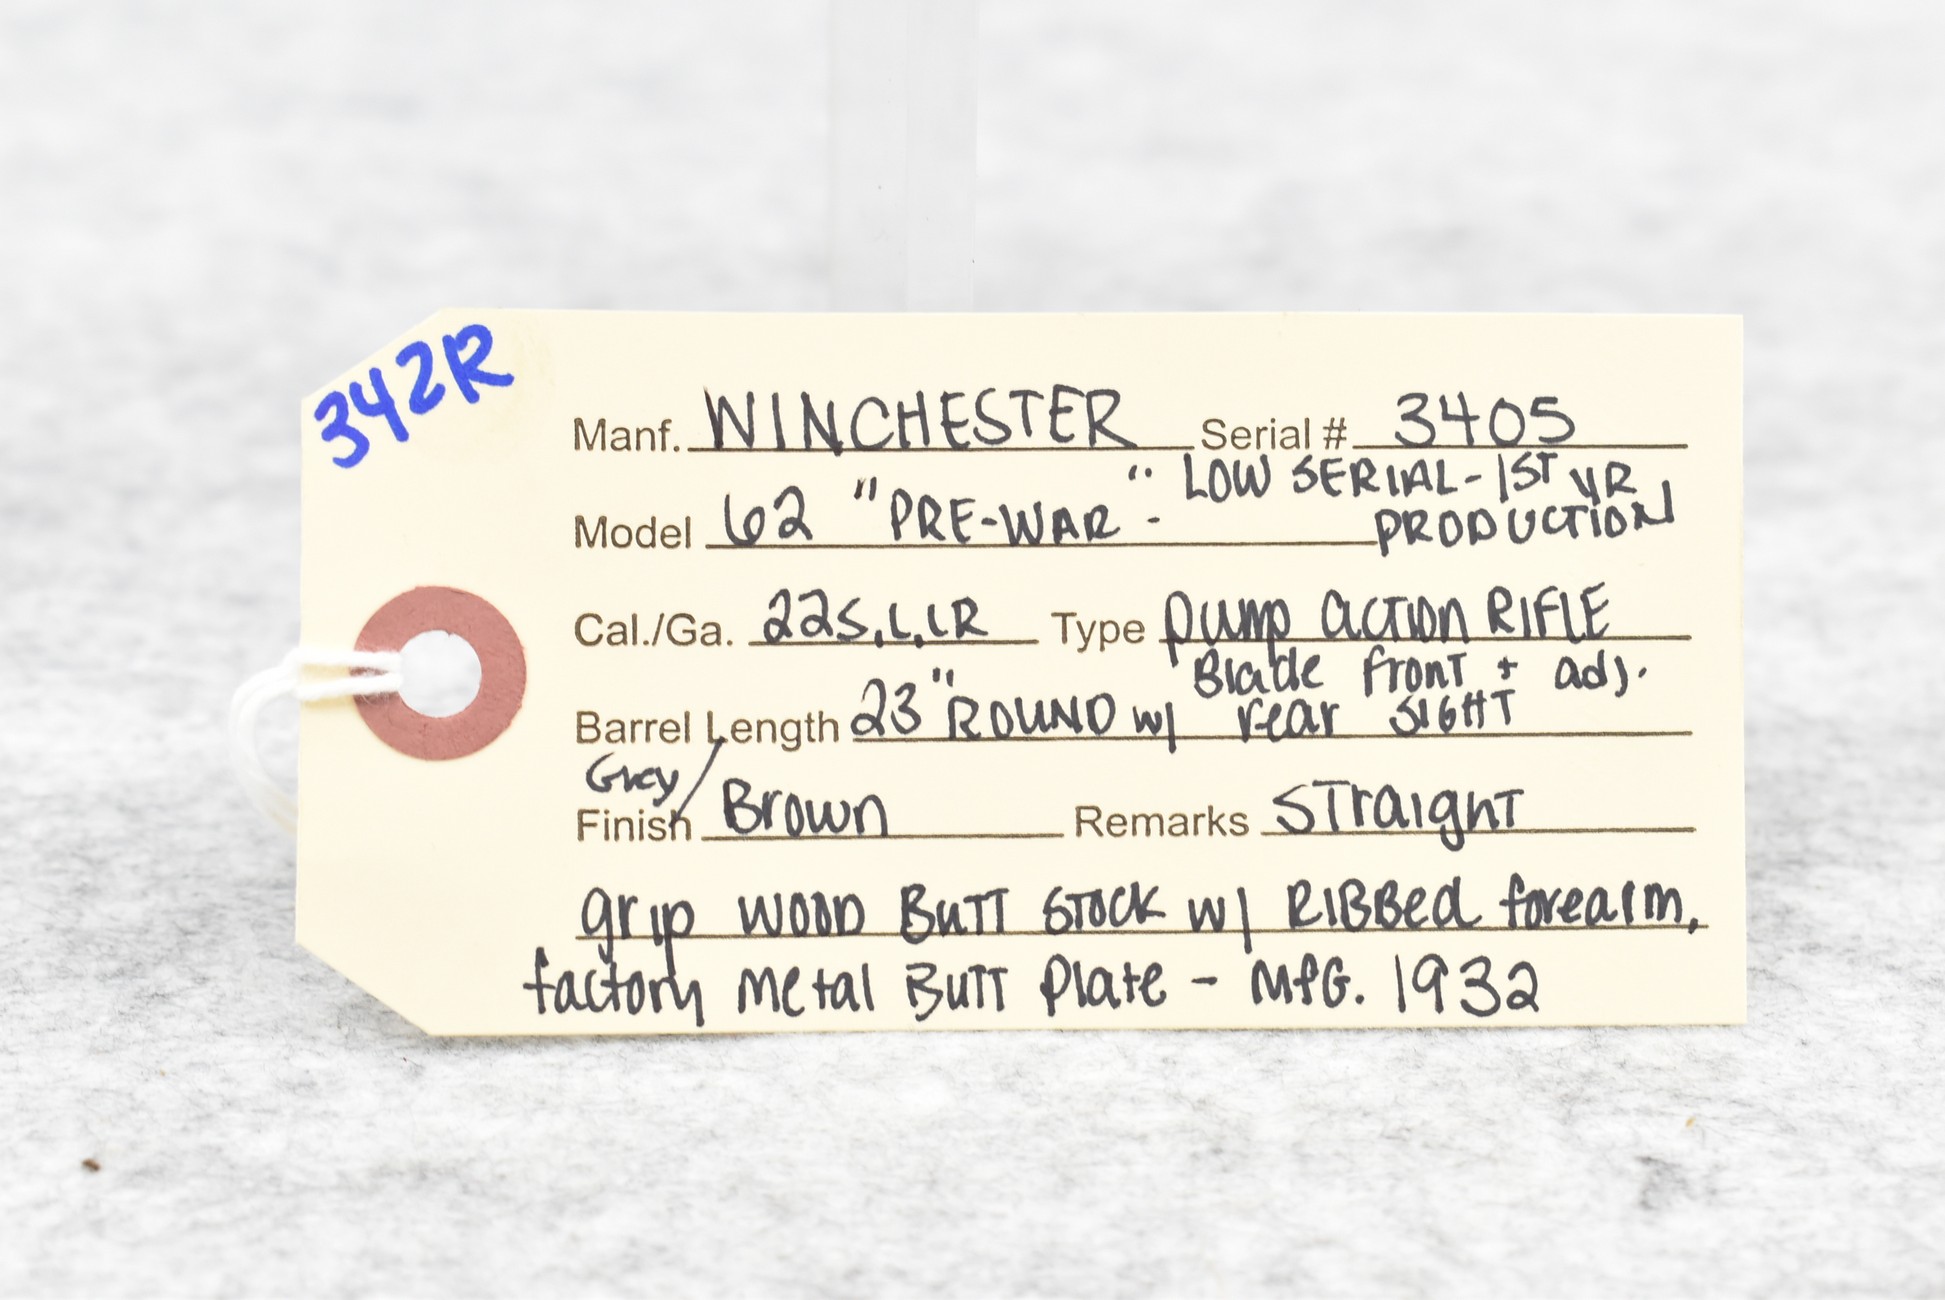 342R
Manf. WINCHESTER Serial # 3405
Model 62 "PRE-WAR" - LOW SERIAL - 1ST YR
PRODUCTION
Cal./Ga. 22S,L,LR Type Pump action RIFLE
Barrel Length 23" ROUND w/ Blade front + adj.
rear SIGHT
Finish Grey/Brown Remarks STraighT
grip WOOD BUTT STOCK w/ RIBBed forearm,
factory metal BUTT Plate - MFG. 1932